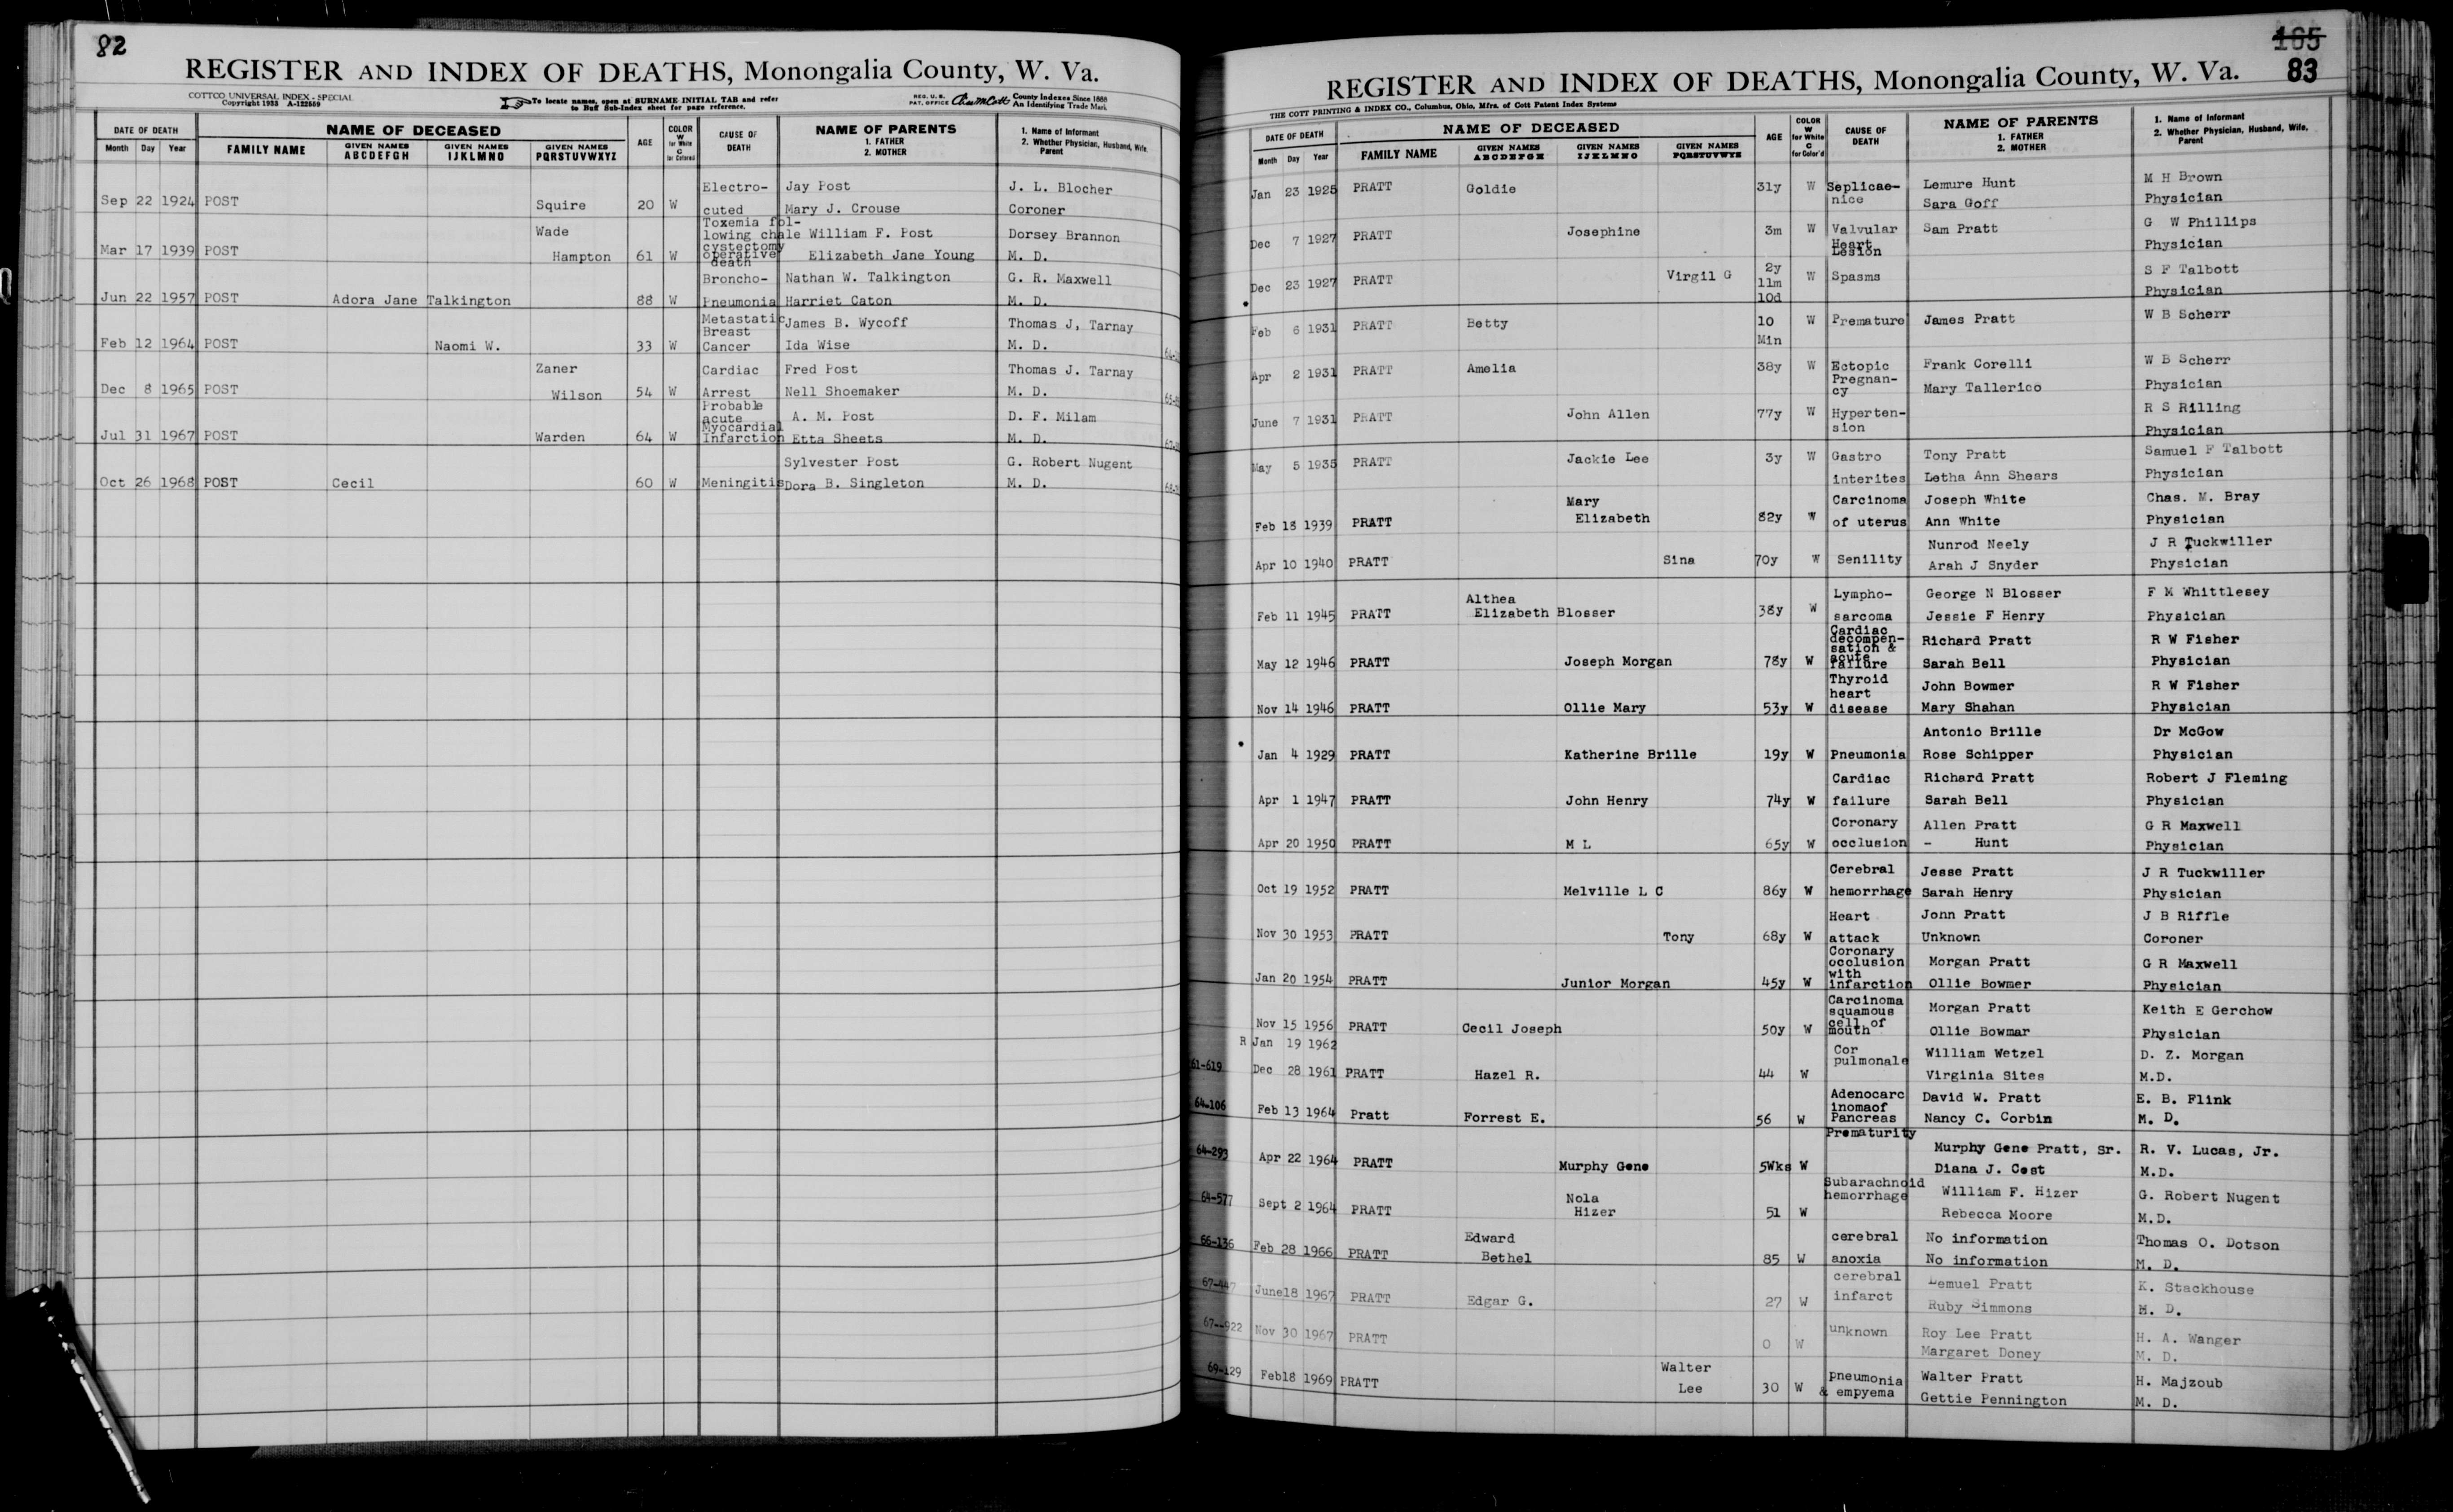 82
REGISTER AND INDEX OF DEATHS, Monongalia County, W. Va.
COTTCO UNIVERSAL INDEX - SPECIAL
Copyright 1933 A-122559
To locate names, open at SURNAME INITIAL TAB and refer
to Buff Sub-Index sheet for page reference.
REG. U. S.
PAT. OFFICE
County Indexes Since 1888
An Identifying Trade Mark
DATE OF DEATH NAME OF DECEASED AGE COLOR W for White C for Colored CAUSE OF DEATH NAME OF PARENTS 1. FATHER 2. MOTHER 1. Name of Informant 2. Whether Physician, Husband, Wife, Parent
Month Day Year FAMILY NAME GIVEN NAMES ABCDEFGH GIVEN NAMES IJKLMNO GIVEN NAMES PQRSTUVWXYZ
Electro- Jay Post J. L. Blocher
Sep 22 1924 POST Squire 20 W cuted Mary J. Crouse Coroner
Toxemia fol-
Wade lowing chale William F. Post Dorsey Brannon
cystectomy
Mar 17 1939 POST Hampton 61 W operative Elizabeth Jane Young M. D.
death
Broncho- Nathan W. Talkington G. R. Maxwell
Jun 22 1957 POST Adora Jane Talkington 88 W Pneumonia Harriet Caton M. D.
Metastatic James B. Wycoff Thomas J, Tarnay
Breast
Feb 12 1964 POST Naomi W. 33 W Cancer Ida Wise M. D.
Zaner Cardiac Fred Post Thomas J. Tarnay
Dec 8 1965 POST Wilson 54 W Arrest Nell Shoemaker M. D.
Probable
acute A. M. Post D. F. Milam
Myocardial
Jul 31 1967 POST Warden 64 W Infarction Etta Sheets M. D.
Sylvester Post G. Robert Nugent
Oct 26 1968 POST Cecil 60 W Meningitis Dora B. Singleton M. D.
165
83
REGISTER AND INDEX OF DEATHS, Monongalia County, W. Va.
THE COTT PRINTING & INDEX CO., Columbus, Ohio, Mfrs. of Cott Patent Index Systems
DATE OF DEATH NAME OF DECEASED AGE COLOR W for White C for Color'd CAUSE OF DEATH NAME OF PARENTS 1. FATHER 2. MOTHER 1. Name of Informant 2. Whether Physician, Husband, Wife, Parent
Month Day Year FAMILY NAME GIVEN NAMES ABCDEFGH GIVEN NAMES IJKLMNO GIVEN NAMES PQRSTUVWXYZ
Jan 23 1925 PRATT Goldie 31y W Seplicae- Lemure Hunt M H Brown
nice Sara Goff Physician
Dec 7 1927 PRATT Josephine 3m W Valvular Sam Pratt G W Phillips
Heart Physician
Lesion
Dec 23 1927 PRATT Virgil G 2y W Spasms S F Talbott
11m Physician
10d
Feb 6 1931 PRATT Betty 10 W Premature James Pratt W B Scherr
Min
Apr 2 1931 PRATT Amelia 38y W Ectopic Frank Corelli W B Scherr
Pregnan- Mary Tallerico Physician
cy
June 7 1931 PRATT John Allen 77y W Hyperten- R S Rilling
sion Physician
May 5 1935 PRATT Jackie Lee 3y W Gastro Tony Pratt Samuel F Talbott
interites Letha Ann Shears Physician
Mary Carcinoma Joseph White Chas. M. Bray
Feb 18 1939 PRATT Elizabeth 82y W of uterus Ann White Physician
Nunrod Neely J R Tuckwiller
Apr 10 1940 PRATT Sina 70y W Senility Arah J Snyder Physician
Althea Lympho- George N Blosser F M Whittlesey
Feb 11 1945 PRATT Elizabeth Blosser 38y W sarcoma Jessie F Henry Physician
Cardiac
decompen- Richard Pratt R W Fisher
sation &
acute
May 12 1946 PRATT Joseph Morgan 78y W failure Sarah Bell Physician
Thyroid John Bowmer R W Fisher
heart
Nov 14 1946 PRATT Ollie Mary 53y W disease Mary Shahan Physician
Antonio Brille Dr McGow
Jan 4 1929 PRATT Katherine Brille 19y W Pneumonia Rose Schipper Physician
Cardiac Richard Pratt Robert J Fleming
Apr 1 1947 PRATT John Henry 74y W failure Sarah Bell Physician
Coronary Allen Pratt G R Maxwell
Apr 20 1950 PRATT M L 65y W occlusion - Hunt Physician
Cerebral Jesse Pratt J R Tuckwiller
Oct 19 1952 PRATT Melville L C 86y W hemorrhage Sarah Henry Physician
Heart John Pratt J B Riffle
Nov 30 1953 PRATT Tony 68y W attack Unknown Coroner
Coronary
occlusion Morgan Pratt G R Maxwell
with
Jan 20 1954 PRATT Junior Morgan 45y W infarction Ollie Bowmer Physician
Carcinoma
squamous Morgan Pratt Keith E Gerchow
cell of
Nov 15 1956 PRATT Cecil Joseph 50y W mouth Ollie Bowmar Physician
R Jan 19 1962
Cor William Wetzel D. Z. Morgan
pulmonale
61-619 Dec 28 1961 PRATT Hazel R. 44 W Virginia Sites M.D.
Adenocarc David W. Pratt E. B. Flink
inomaof
64-106 Feb 13 1964 Pratt Forrest E. 56 W Pancreas Nancy C. Corbin M. D.
Prematurity
Murphy Gene Pratt, Sr. R. V. Lucas, Jr.
64-293 Apr 22 1964 PRATT Murphy Gene 5Wks W Diana J. Cost M.D.
Subarachnoid
Nola hemorrhage William F. Hizer G. Robert Nugent
64-577 Sept 2 1964 PRATT Hizer 51 W Rebecca Moore M.D.
Edward cerebral No information Thomas O. Dotson
66-136 Feb 28 1966 PRATT Bethel 85 W anoxia No information M. D.
cerebral Lemuel Pratt K. Stackhouse
67-447 June18 1967 PRATT Edgar G. 27 W infarct Ruby Simmons M. D.
67--922 Nov 30 1967 PRATT 0 W unknown Roy Lee Pratt H. A. Wanger
Margaret Doney M. D.
Walter Pneumonia Walter Pratt H. Majzoub
69-129 Feb18 1969 PRATT Lee 30 W & empyema Gettie Pennington M. D.